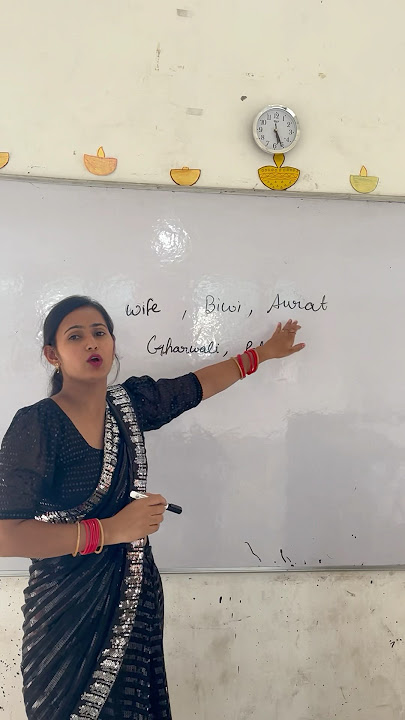 wife , Biwi , Aurat
Gharwali,